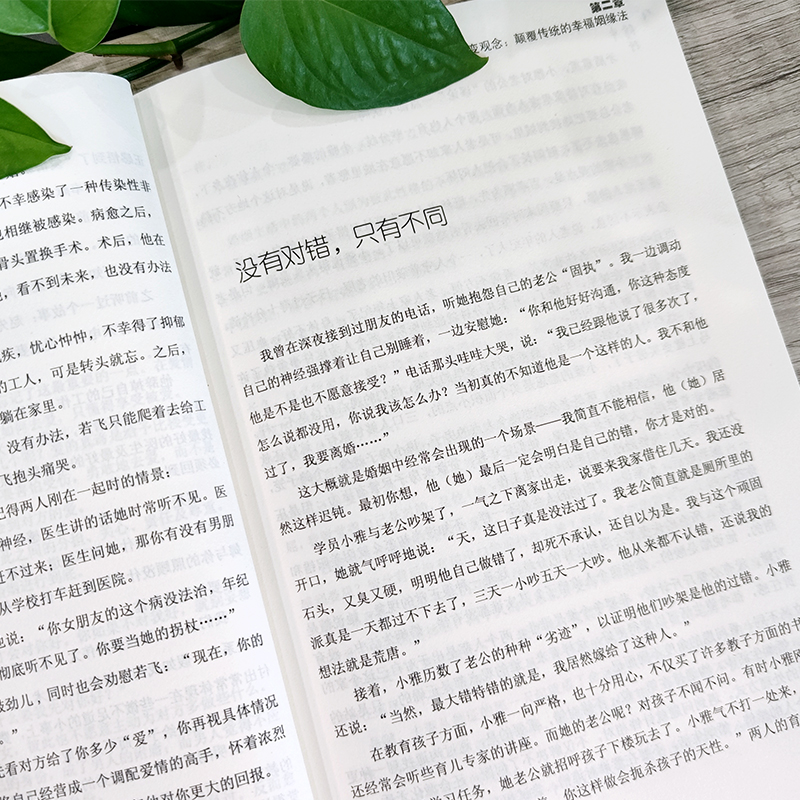 不幸感染了一种传染性非
相继被感染。病愈之后，
骨头置换手术。术后，他在
，看不到未来，也没有办法
疾，忧心忡忡，不幸得了抑郁
的工人，可是转头就忘。之后，
躺在家里。
没有办法，若飞只能爬着去给工
飞抱头痛哭。
记得两人刚在一起时的情景：
神经，医生讲的话她时常听不见。医
不过来；医生问她，那你有没有男朋
从学校打车赶到医院。
说：“你女朋友的这个病没法治，年纪
彻底听不见了。你要当她的拐杖……”
劲儿，同时也会劝慰若飞：“现在，你的
”
看对方给了你多少“爱”，你再视具体情况
自己经营成一个调配爱情的高手，怀着浓烈
对你更大的回报。
第二章
观念：颠覆传统的幸福姻缘法
没有对错，只有不同
我曾在深夜接到过朋友的电话，听她抱怨自己的老公“固执”。我一边调动
自己的神经强撑着让自己别睡着，一边安慰她：“你和他好好沟通，你这种态度
他是不是也不愿意接受？”电话那头哇哇大哭，说：“我已经跟他说了很多次了，
怎么说都没用，你说我该怎么办？当初真的不知道他是一个这样的人。我不和他
过了，我要离婚……”
这大概就是婚姻中经常会出现的一个场景——我简直不能相信，他（她）居
然这样迟钝。最初你想，他（她）最后一定会明白是自己的错，你才是对的。
学员小雅与老公吵架了，一气之下离家出走，说要来我家借住几天。我还没
开口，她就气呼呼地说：“天，这日子真是没法过了。我老公简直就是厕所里的
石头，又臭又硬，明明他自己做错了，却死不承认，还自以为是。我与这个顽固
派真是一天都过不下去了，三天一小吵五天一大吵。他从来都不认错，还说我的
想法就是荒唐。”
接着，小雅历数了老公的种种“劣迹”，以证明他们吵架是他的过错。小雅
还说：“当然，最大错特错的就是，我居然嫁给了这种人。”
在教育孩子方面，小雅一向严格，也十分用心，不仅买了许多教子方面的书
还经常会听些育儿专家的讲座。而她的老公呢？对孩子不闻不问。有时小雅
学习任务，她老公就招呼孩子下楼玩去了。小雅气不打一处来，
，你这样做会扼杀孩子的天性。”两人的育